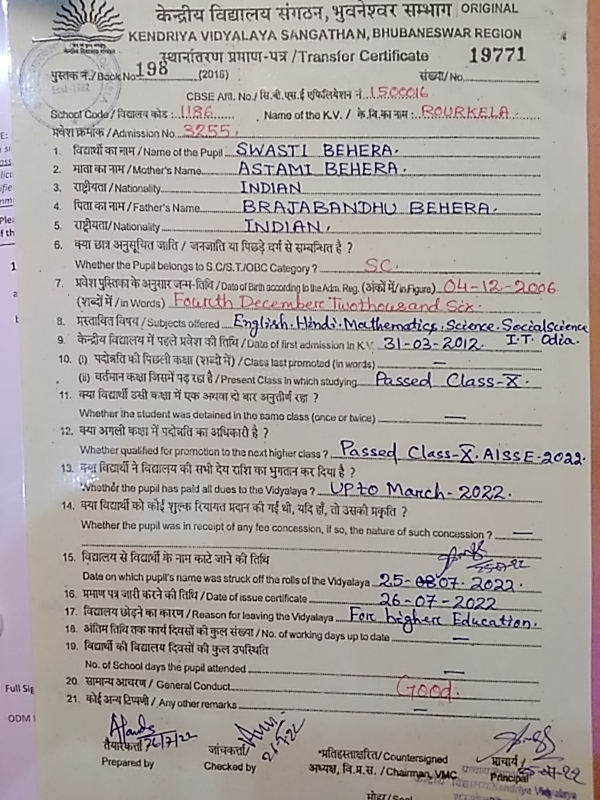 केन्द्रीय विद्यालय संगठन, भुवनेश्वर सम्भाग ORIGINAL
KENDRIYA VIDYALAYA SANGATHAN, BHUBANESWAR REGION
स्थानांतरण प्रमाण-पत्र / Transfer Certificate 19771
पुस्तक नं./Book No. 198 (2016) संख्या/No.
CBSE Affl. No./ सि.बी.एस.ई एफिलियेशन नं. 1500016
School Code / विद्यालय कोड : 1186 Name of the K.V. / के.वि.का नाम : ROURKELA.
प्रवेश क्रमांक / Admission No. 3255.
1. विद्यार्थी का नाम / Name of the Pupil SWASTI BEHERA.
2. माता का नाम / Mother's Name ASTAMI BEHERA.
3. राष्ट्रीयता / Nationality INDIAN
4. पिता का नाम / Father's Name BRAJABANDHU BEHERA.
5. राष्ट्रीयता/ Nationality INDIAN.
6. क्या छात्र अनुसूचित जाति / जनजाति या पिछड़े वर्ग से सम्बन्धित है ?
Whether the Pupil belongs to S.C/S.T/OBC Category ? SC.
7. प्रवेश पुस्तिका के अनुसार जन्म-तिथि / Date of Birth according to the Adm. Reg. (अंकों में/in Figure) 04-12-2006
(शब्दों में / in Words) Fourth December Twothousand Six.
8. प्रस्तावित विषय / Subjects offered English. Hindi. Mathematics. Science. Social Science
9. केन्द्रीय विद्यालय में पहले प्रवेश की तिथि / Date of first admission in K.V. 31-03-2012. I.T. Odia.
10. (i) पदोन्नति की पिछली कक्षा (शब्दो में) / Class last promoted (in words) —
(ii) वर्तमान कक्षा जिसमें पढ़ रहा है / Present Class in which studying Passed Class-X.
11. क्या विद्यार्थी उसी कक्षा में एक अथवा दो बार अनुत्तीर्ण रहा ?
Whether the student was detained in the same class (once or twice) —
12. क्या अगली कक्षा में पदोन्नति का अधिकारी है ?
Whether qualified for promotion to the next higher class ? Passed Class-X. AISSE-2022.
13. क्या विद्यार्थी ने विद्यालय की सभी देय राशि का भुगतान कर दिया है ?
Whether the pupil has paid all dues to the Vidyalaya ? UPto March-2022.
14. क्या विद्यार्थी को कोई शुल्क रियायत प्रदान की गई थी, यदि हाँ, तो उसकी प्रकृति ?
Whether the pupil was in receipt of any fee concession, if so, the nature of such concession ? —
15. विद्यालय से विद्यार्थी के नाम काटे जाने की तिथि
Date on which pupil's name was struck off the rolls of the Vidyalaya 25-07.2022.
16. प्रमाण पत्र जारी करने की तिथि / Date of issue certificate 26-07-2022
17. विद्यालय छोड़ने का कारण / Reason for leaving the Vidyalaya For higher Education.
18. अंतिम तिथि तक कार्य दिवसों की कुल संख्या / No. of working days up to date —
19. विद्यार्थी की विद्यालय दिवसों की कुल उपस्थिति
No. of School days the pupil attended —
20. सामान्य आचरण / General Conduct Good.
21. कोई अन्य टिप्पणी / Any other remarks —
तैयारकर्त्ता जांचकर्त्ता *प्रतिहस्ताक्षरित / Countersigned प्राचार्य
Prepared by Checked by अध्यक्ष, वि.प्र.स. / Chairman, VMC Principal
Kendriya Vidyalaya